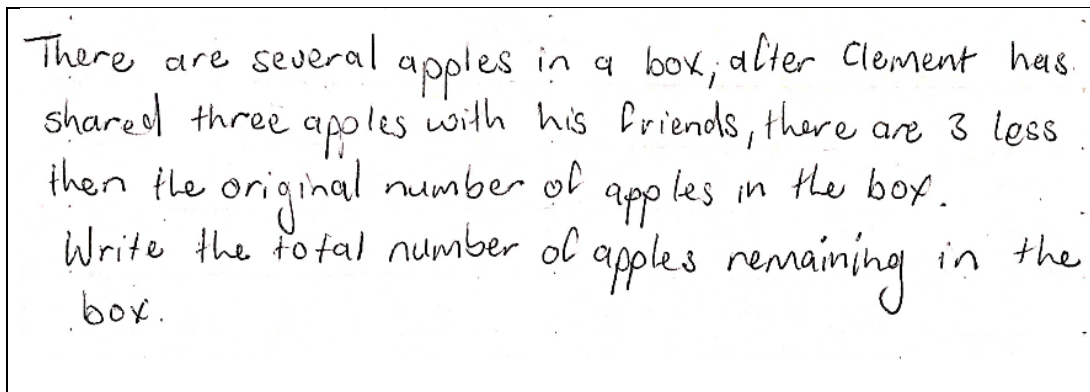 There are several apples in a box, after Clement has
shared three apples with his friends, there are 3 less
then the original number of apples in the box.
Write the total number of apples remaining in the
box.